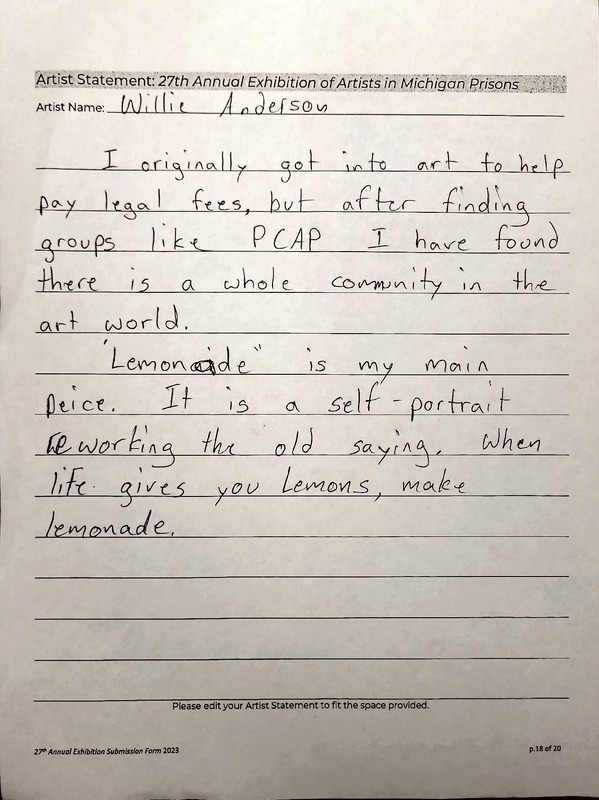 Artist Statement: 27th Annual Exhibition of Artists in Michigan Prisons
Artist Name: Willie Anderson
I originally got into art to help
pay legal fees, but after finding
groups like PCAP I have found
there is a whole community in the
art world.
"Lemonade" is my main
peice. It is a self-portrait
reworking the old saying. When
life gives you Lemons, make
lemonade.
Please edit your Artist Statement to fit the space provided.
27th Annual Exhibition Submission Form 2023
p.18 of 20